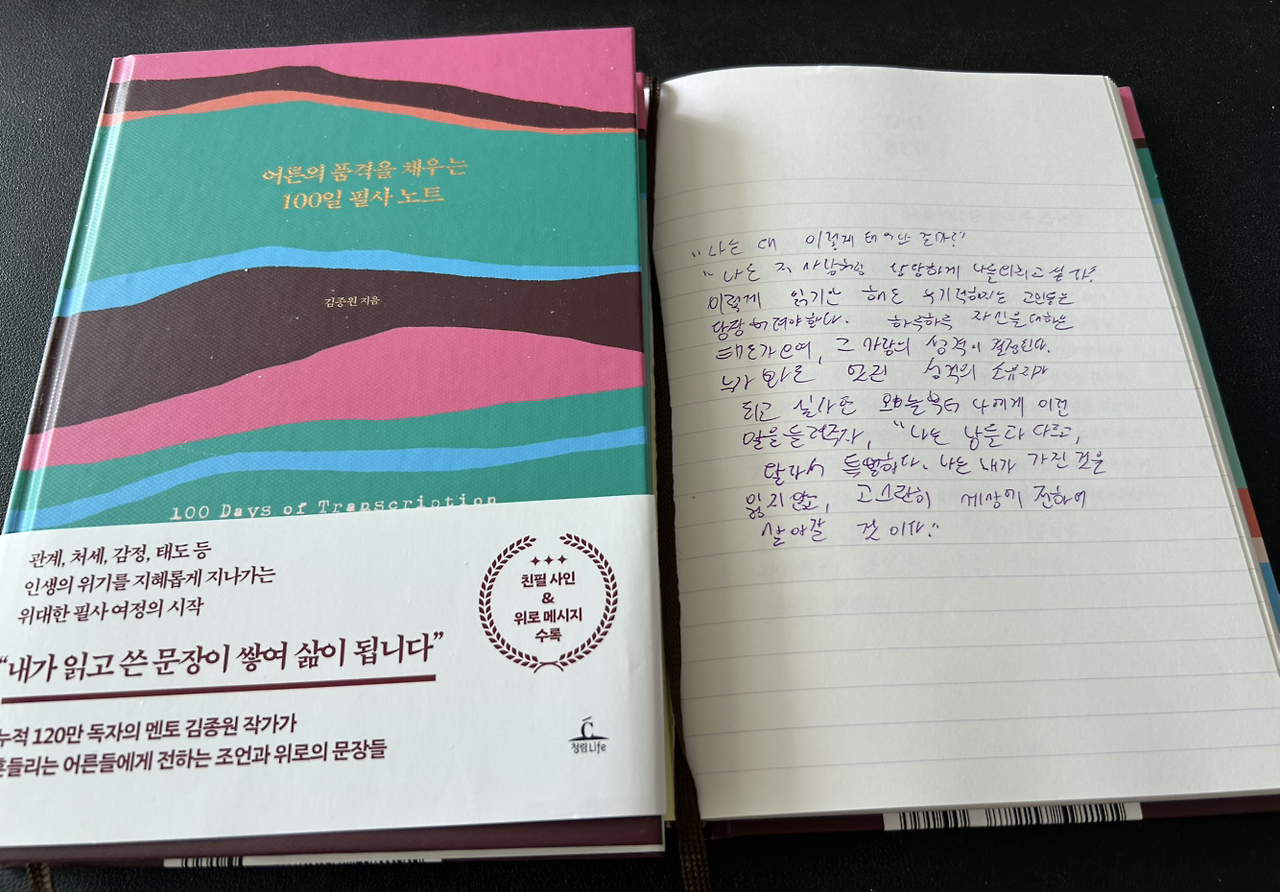 어른의 품격을 채우는
100일 필사 노트
김종원 지음
100 Days of Transcription
관계, 처세, 감정, 태도 등
인생의 위기를 지혜롭게 지나가는
위대한 필사 여정의 시작
“내가 읽고 쓴 문장이 쌓여 삶이 됩니다”
누적 120만 독자의 멘토 김종원 작가가
흔들리는 어른들에게 전하는 조언과 위로의 문장들
친필 사인
&
위로 메시지
수록
청림Life
“나는 왜 이렇게 태어난
“나는 저 사람처럼 당당하게 나를 싶다!
이렇게 해도 고민들은
당장 한다. 하루하루 자신을 대하는
태도가 모여, 그 사람의 성격이 결정된다.
성격의 소유자가
되고 싶다면 오늘부터 나에게 이런
말을 들려주자, “나는 남들과 다르고,
달라서 특별하다. 나는 내가 가진 것을
잃지 않고, 고스란히 세상에 전하며
살아갈 것이다.”